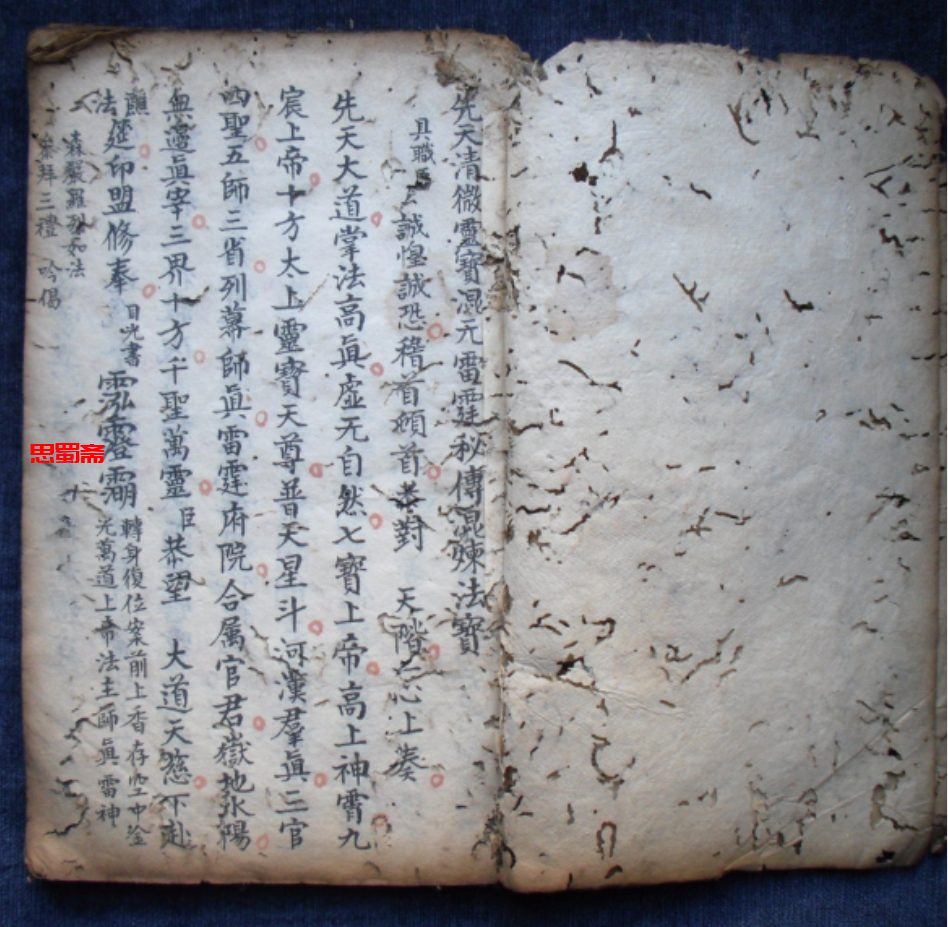 先天清微靈寶混元雷霆秘傳混煉法寶
具職臣ㄙ誠惶誠恐稽首頓首恭對　天階　心上奏
先天大道掌法高眞虛无自然七寶上帝高上神霄九
宸上帝十方太上靈寶天尊普天星斗河漢羣眞三官
四聖五師三省列幕師眞雷霆府院合属官君嶽地水陽
無邊眞宰三界十方千聖萬靈臣　恭望　大道天慈下赴
醮筵印盟修奉　目光書　轉身復位案前上香存空中金
光萬道上帝法主師眞雷神
森嚴羅列如法
案拜三禮　吟偈
思蜀斋